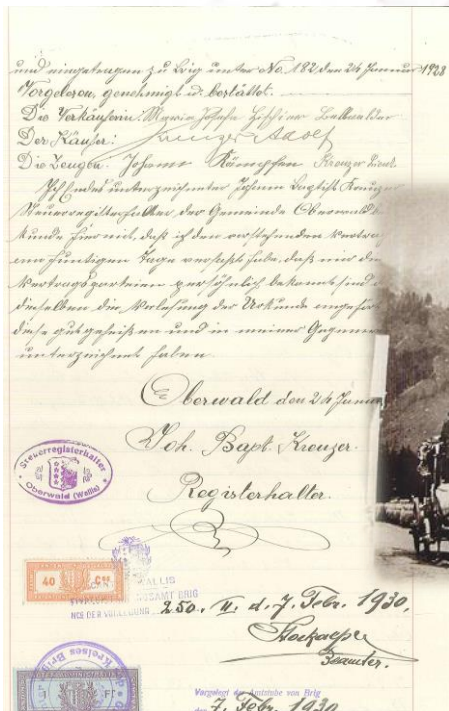 und eingetragen zu Brig unter No. 182 den 24 Januar 1928
Vorgelesen, genehmigt u. bestättet.
Die Verkäuferin: Maria Josefa Hischier
Der Käufer: Kreuzer Adolf
Die Zeugen: Johann Kämpfen Kreuzer
Ich Endes unterzeichneter Johann Baptist Kreuzer
Steuerregisterhalter, der Gemeinde Oberwald
kunde hiermit, daß ich den vorstehenden Vertrag
am heutigen Tage verfaßt habe, daß mir die
Vertragsparteien persönlich bekannt sind
dieselben die Verlesung der Urkunde angehör
diese gutgeheißen und in meiner Gegenwa
unterzeichnet haben
Oberwald den 24 Januar
Joh. Bapt. Kreuzer.
Registerhalter.
Steuerregisterhalter
Oberwald (Wallis)
40 Cts
WALLIS
AMT BRIG
250. II. d. 7. Febr. 1930.
Beamter.
Fr
Vorgelegt der Amtstube von Brig
den 7. Febr. 1930